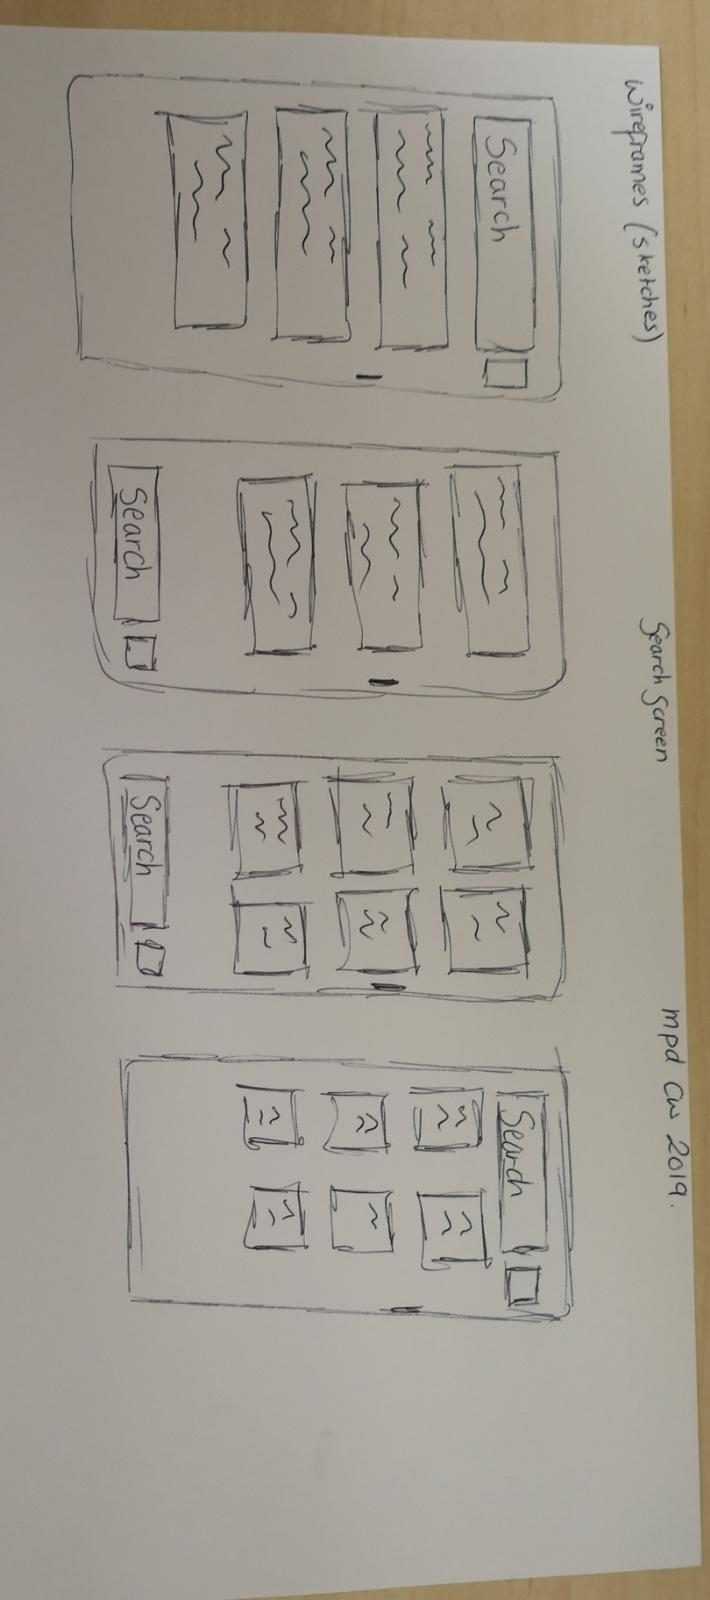 Wireframes (sketches)
Search Screen
mpd CW 2019.
Search
Search
Search
Search